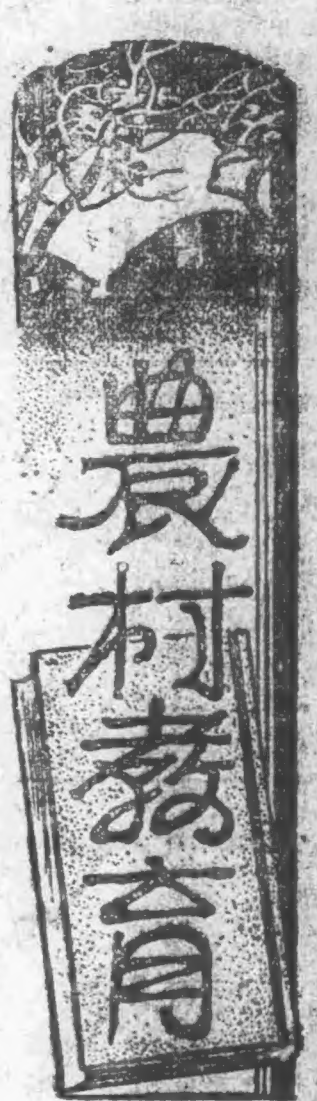 農村教育